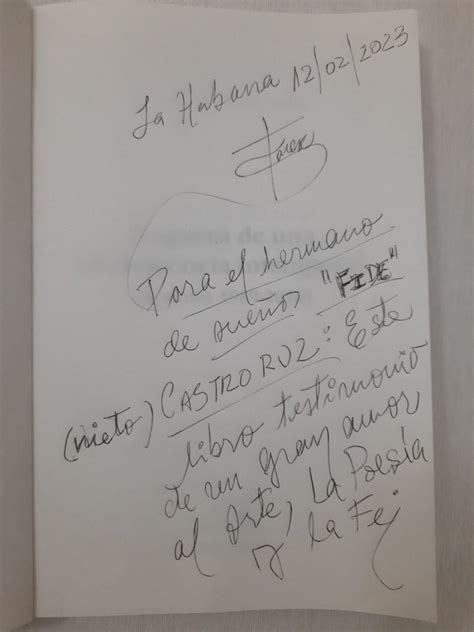 La Habana 12/02/2023
Para el hermano
de sueños "FIDE"
(nieto) CASTRO RUZ: Este
libro testimonio
de un gran amor
al Arte, La Poesía
y la Fe